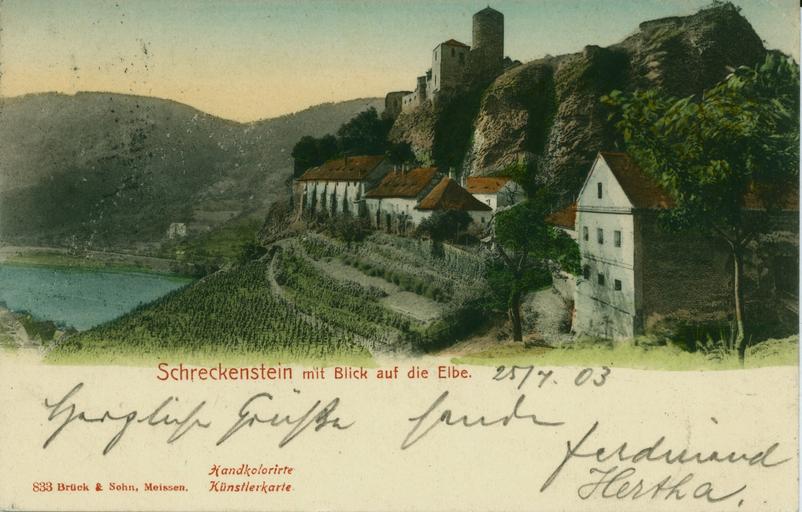 Schreckenstein mit Blick auf die Elbe. 25/7. 03
Herzliche Grüße sende
Ferdinand
Hertha.
Handkolorirte
Künstlerkarte.
833 Brück & Sohn, Meissen.